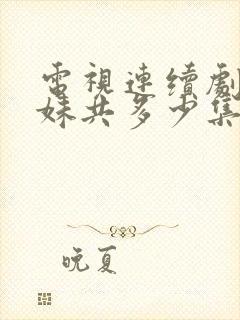 電視連續劇
妹共多少集
晚夏